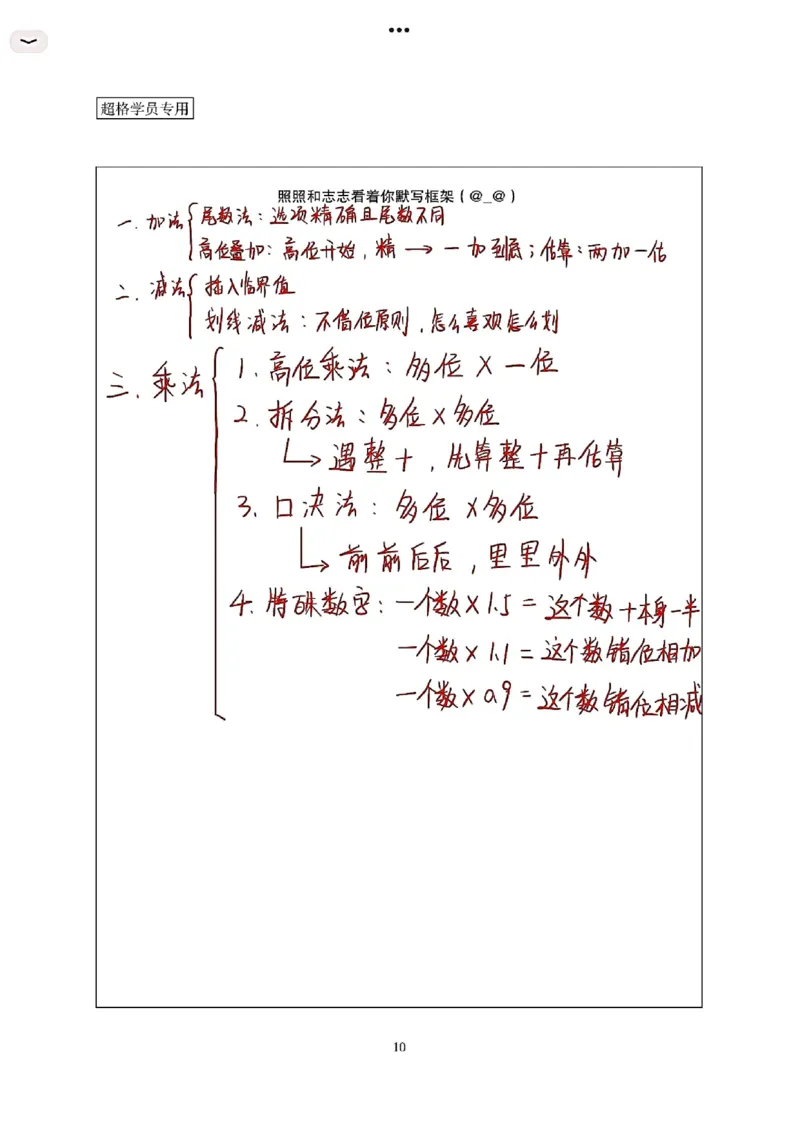 超格学员专用
照照和志志看着你默写框架（@_@）
一.加法 尾数法：选项精确且尾数不同
高位叠加：高位开始，精→一加到底；估算：两加一估
二.减法 插入临界值
划线减法：不借位原则，怎么喜欢怎么划
三.乘法 1.高位乘法：多位×一位
2.拆分法：多位×多位
↳遇整十，先算整十再估算
3.口决法：多位×多位
↳前前后后，里里外外
4.特殊数字：一个数×1.5=这个数+本身一半
一个数×1.1=这个数错位相加
一个数×0.9=这个数错位相减
10